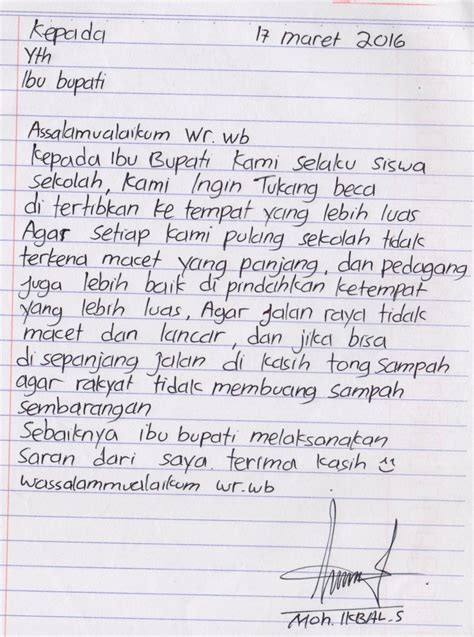 Kepada 17 maret 2016
Yth
Ibu bupati
Assalamualaikum Wr. wb
Kepada Ibu Bupati kami selaku siswa
sekolah, kami Ingin Tukang beca
di tertibkan ke tempat yang lebih luas
Agar setiap kami pulang sekolah tidak
terkena macet yang panjang, dan pedagang
juga lebih baik di pindahkan ketempat
yang lebih luas, Agar jalan raya tidak
macet dan lancar, dan jika bisa
di sepanjang jalan di kasih tong sampah
agar rakyat tidak membuang sampah
sembarangan
Sebaiknya ibu bupati melaksanakan
saran dari saya. terima kasih
wassalammualaikum wr. wb
Moh. IKBAL. S